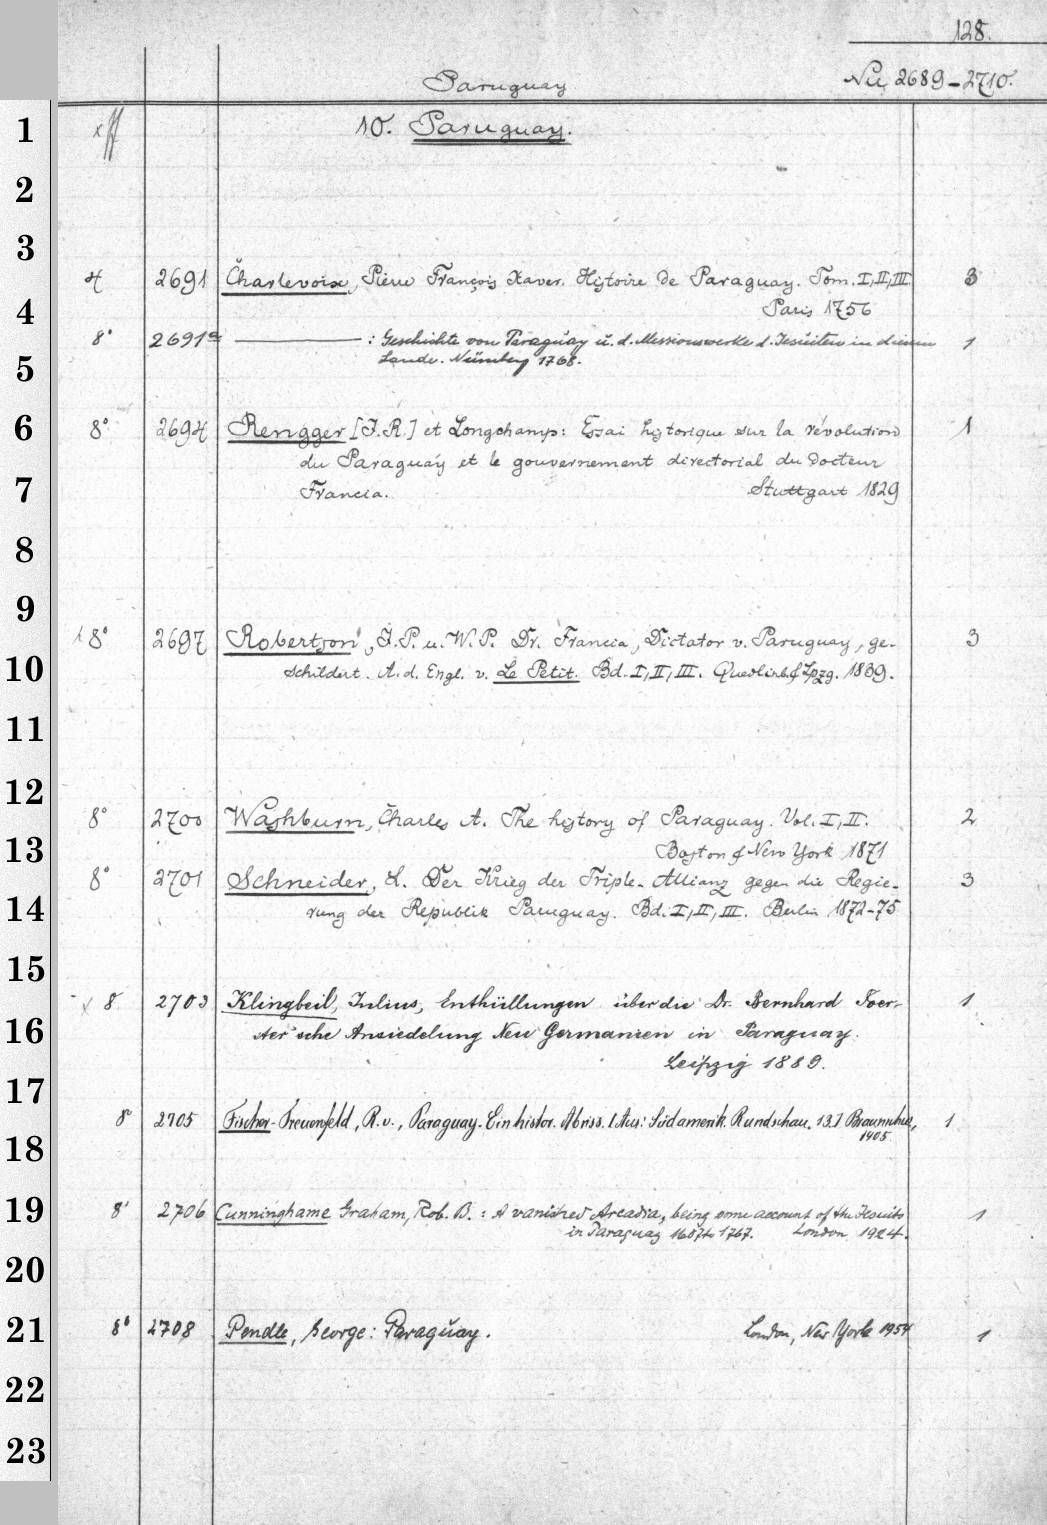 128.
Paruguay
Nu 2689-2710.
1 10. Paruguay.
2
3
4 2691 Charlevoix, Pierre François Xaver. Histoire de Paraguay. Tom. I, II, III 3
4 Paris 1756
8° 2691a ——— : Geschichte von Paraguay u. d. Missionswerke d. Jesuiten in diesem 1
5 Lande. Nürnberg 1768.
6 8° 2694 Rengger [J. R.] et Longchamp: Essai historique sur la révolution 1
du Paraguay et le gouvernement directorial du docteur
7 Francia. Stuttgart 1829
8
9
8° 2697 Robertson, J. P. u. W. P. Dr. Francia, Dictator v. Paruguay, ge- 3
10 schildert. A. d. Engl. v. Le Petit. Bd. I, II, III. Quedlinb. & Lpzg. 1839.
11
12
8° 2700 Washburn, Charles A. The history of Paraguay. Vol. I, II. 2
13 Boston & New York 1871
8° 2701 Schneider, L. Der Krieg der Triple-Allianz gegen die Regie- 3
14 rung der Republik Paruguay. Bd. I, II, III. Berlin 1872-75
15
x 8 2703 Klingbeil, Julius, Enthüllungen über die Dr. Bernhard Foer- 1
16 ster'sche Ansiedelung Neu Germanien in Paraguay.
Leipzig 1889.
17
8° 2705 Fischer-Treuenfeld, R. v., Paraguay. Ein histor. Abriss. (Aus: Südamerik. Rundschau. 13.) 1
18 1905
19 8° 2706 Cunninghame Graham, Rob. B.: A vanished Arcadia, being some account of the Jesuits 1
in Paraguay 1607 to 1767. London 1924.
20
21 8° 2708 Pendle, George: Paraguay. London, New York 1954 1
22
23